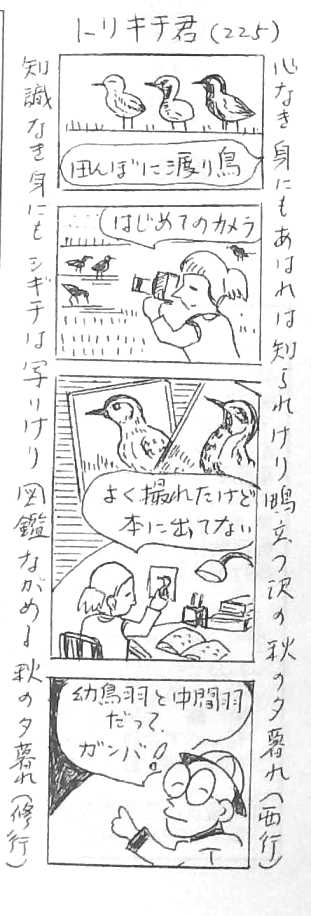 トリキチ君(225)
心なき身にもあはれは知られけり鴫立つ沢の秋の夕暮れ(西行)
田んぼに渡り鳥
はじめてのカメラ
よく撮れたけど
本に出てない
幼鳥羽と中間羽
だって、
ガンバ!
知識なき身にもシギチは写りけり図鑑ながめる秋の夕暮れ(修行)